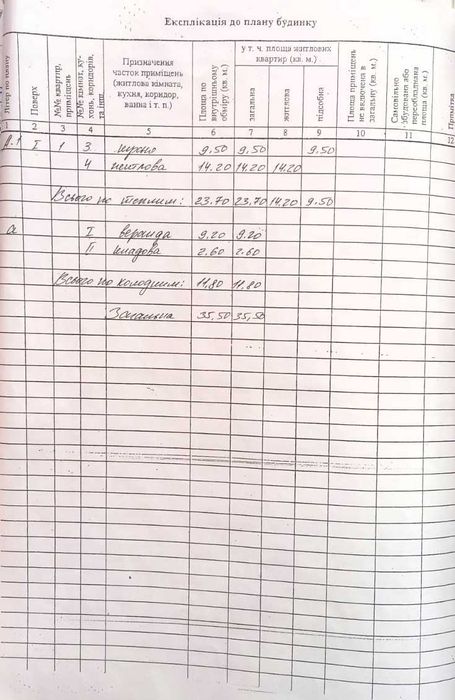 Експлікація до плану будинку
Літер по плану
Поверх
№№ квартир, приміщень
№№ кімнат, кухонь, коридорів, та інш
Призначення часток приміщень (житлова кімната, кухня, коридор, ванна і т. п.)
Площа по внутрішньому обміру (кв. м.)
у т. ч. площа житлових квартир (кв. м.)
загальна
житлова
підсобна
Площа приміщень не включена в загальну (кв. м.)
Самовільно збудована або переобладнана площа (кв. м.)
Примітка
1 2 3 4 5 6 7 8 9 10 11 12
I 1 3 кухня 9.50 9.50 9.50
4 житлова 14.20 14.20 14.20
Всього по теплим: 23.70 23.70 14.20 9.50
а I веранда 9.20 9.20
II кладова 2.60 2.60
Всього по холодним: 11.80 11.80
Загальна 35,50 35,50